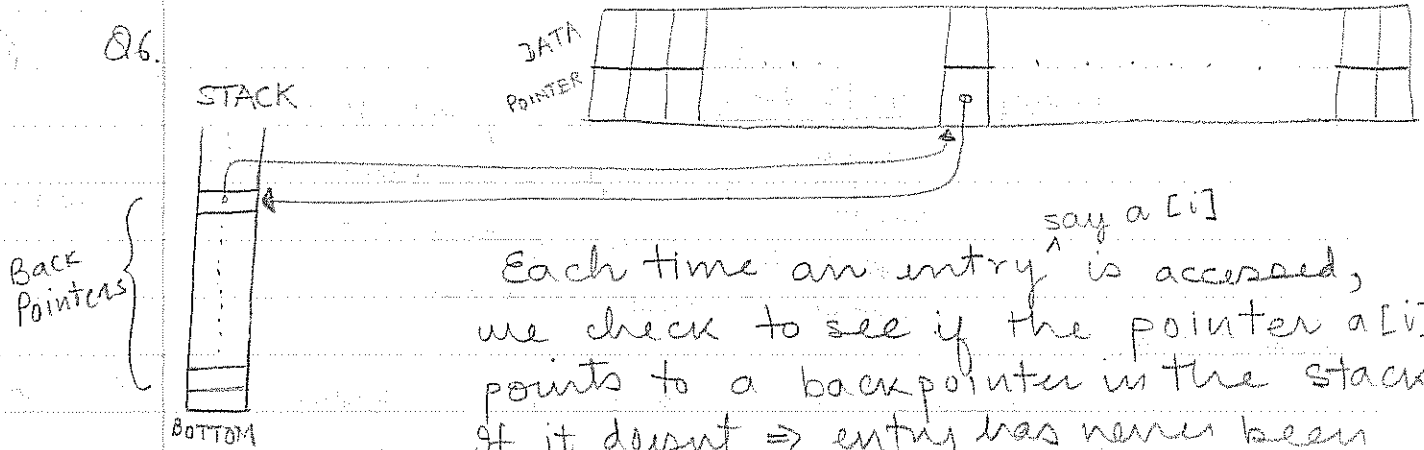 Q6.
DATA
POINTER
STACK
Back
Pointers
BOTTOM
say a[i]
Each time an entry ^ is accessed,
we check to see if the pointer a[i]
points to a backpointer in the stack
If it doesnt ⇒ entry has never been